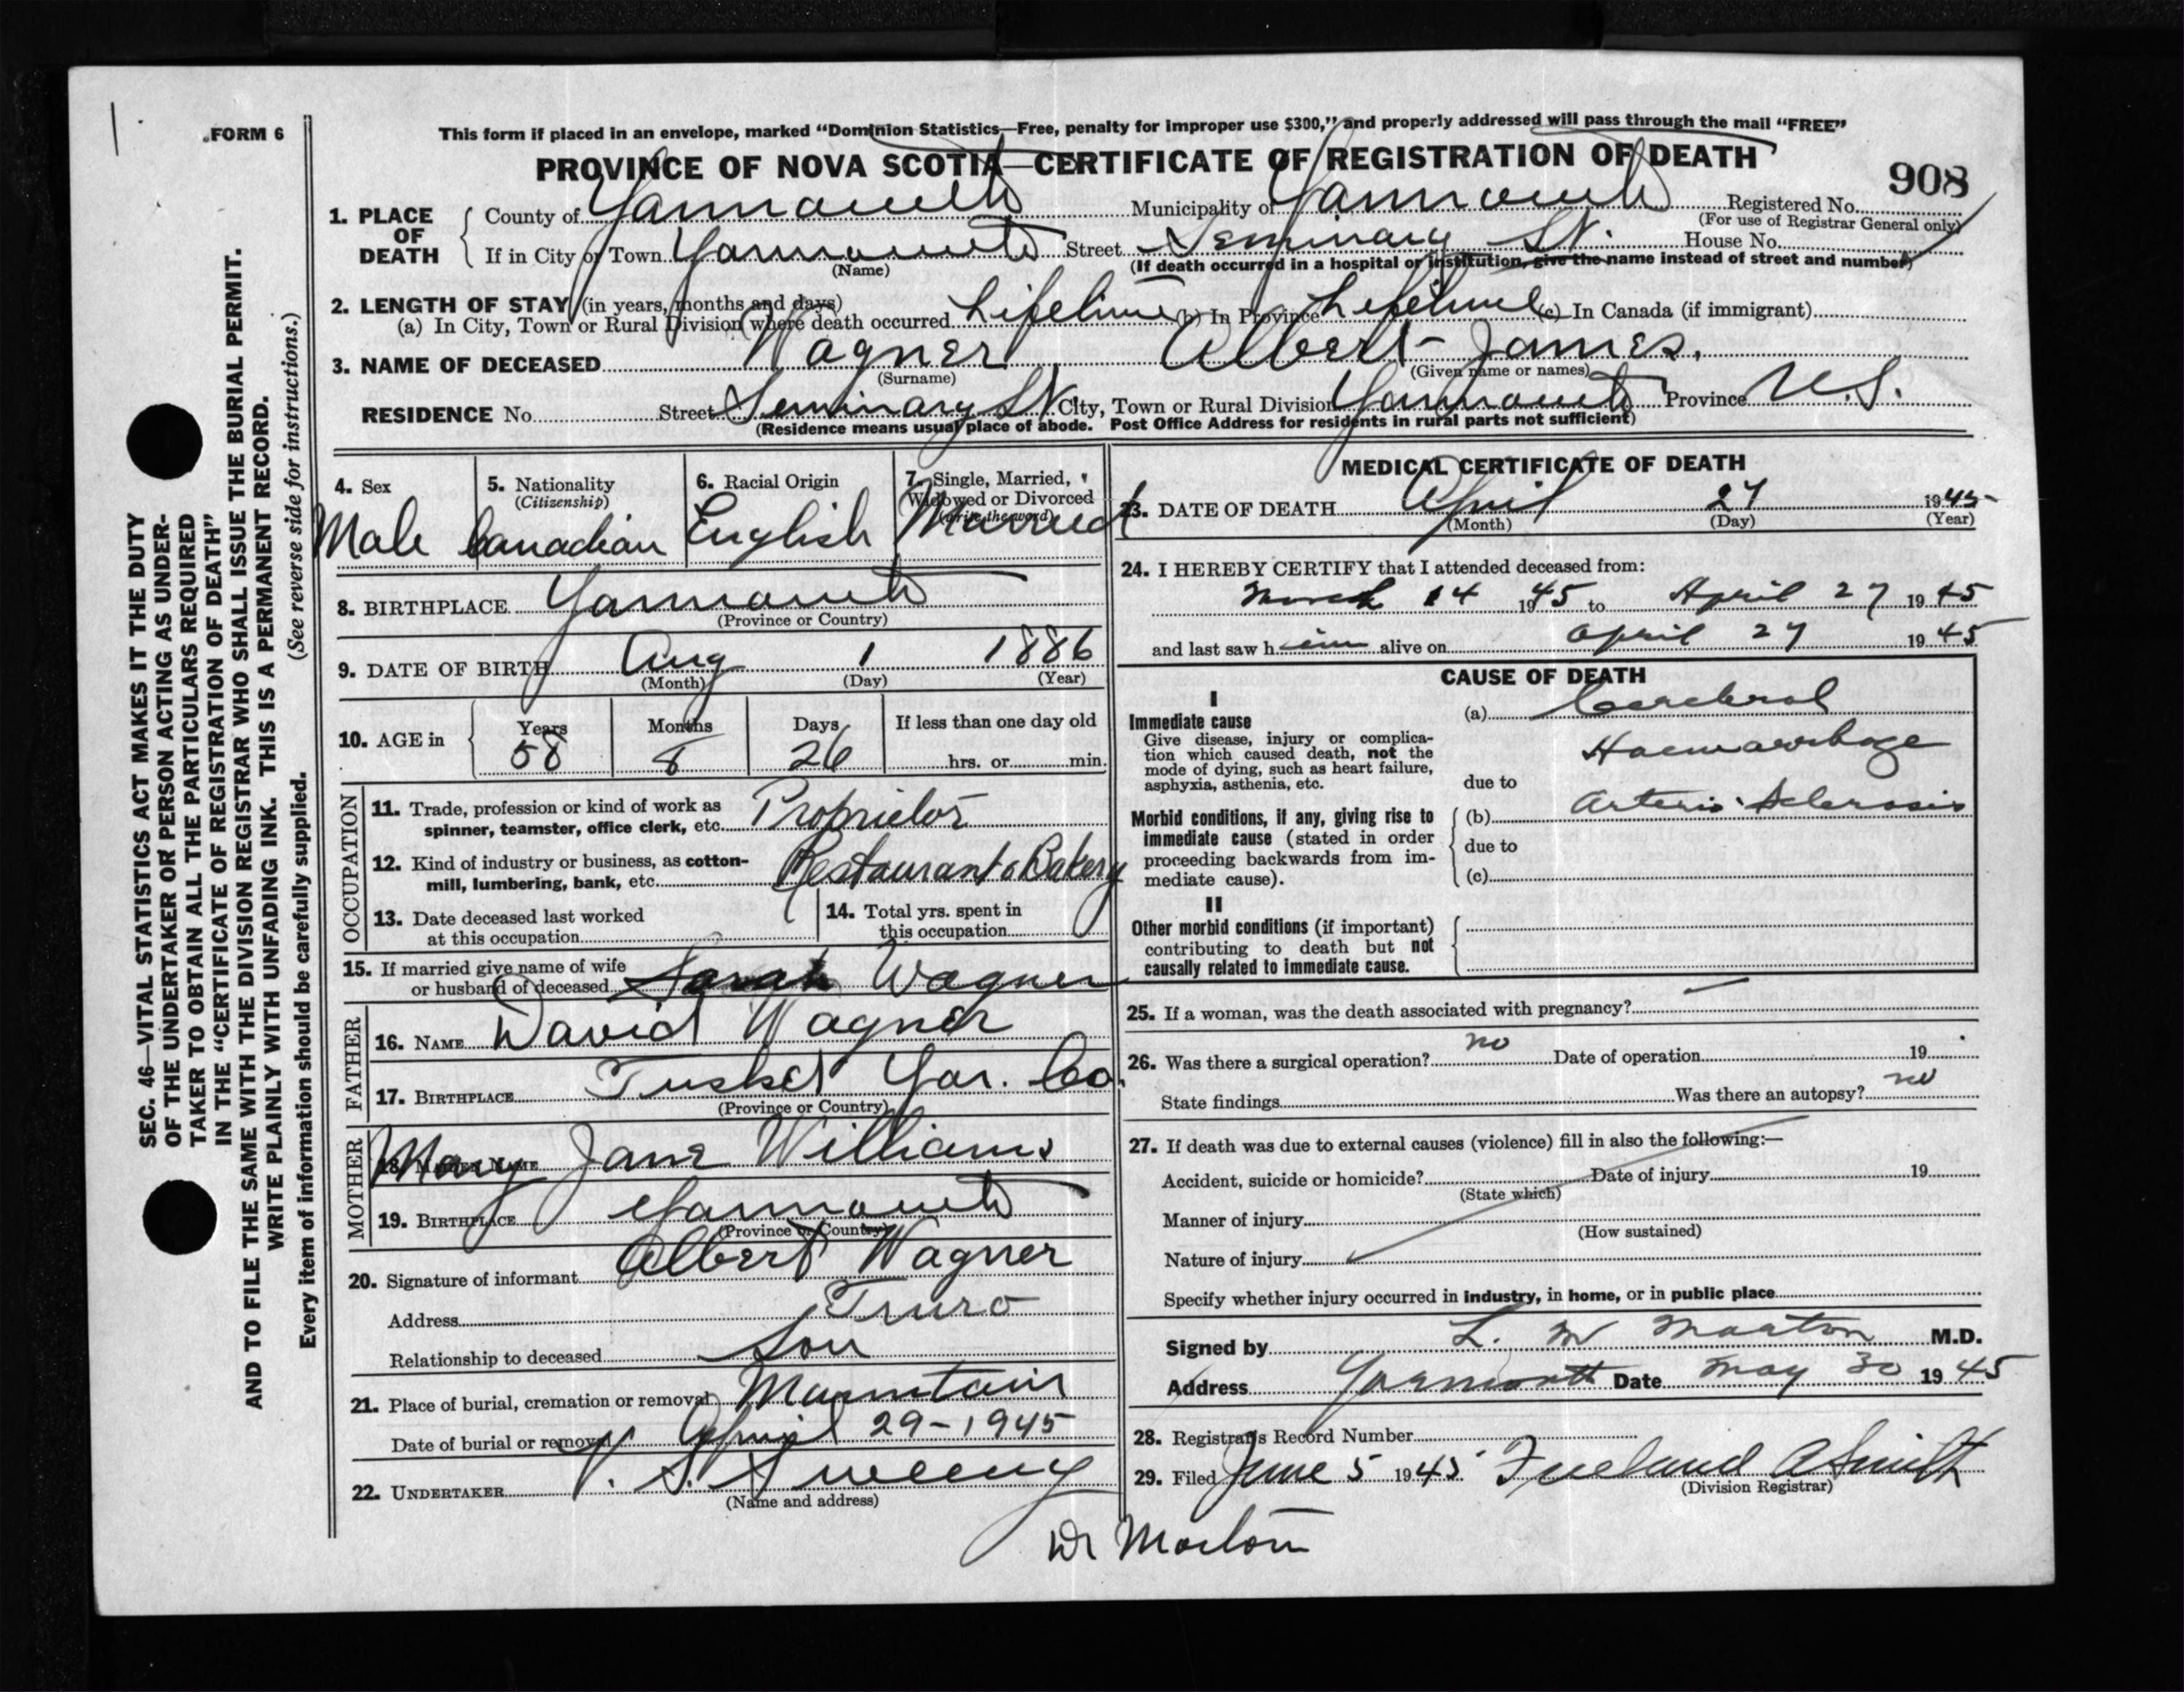 FORM 6
This form if placed in an envelope, marked “Dominion Statistics—Free, penalty for improper use $300,” and properly addressed will pass through the mail “FREE”
PROVINCE OF NOVA SCOTIA—CERTIFICATE OF REGISTRATION OF DEATH
908
1. PLACE OF DEATH
County of Yarmouth Municipality of Yarmouth Registered No.
(For use of Registrar General only)
If in City or Town Yarmouth Street Seminary St. House No.
(Name) (If death occurred in a hospital or institution, give the name instead of street and number)
2. LENGTH OF STAY (in years, months and days)
(a) In City, Town or Rural Division where death occurred Lifetime (b) In Province Lifetime (c) In Canada (if immigrant)
3. NAME OF DECEASED Wagner Albert James.
(Surname) (Given name or names)
RESIDENCE No. Street Seminary St City, Town or Rural Division Yarmouth Province N.S.
(Residence means usual place of abode. Post Office Address for residents in rural parts not sufficient)
4. Sex
Male
5. Nationality
(Citizenship)
Canadian
6. Racial Origin
English
7. Single, Married,
Widowed or Divorced
(write the word)
Married
8. BIRTHPLACE Yarmouth
(Province or Country)
9. DATE OF BIRTH Aug 1 1886
(Month) (Day) (Year)
10. AGE in
Years Months Days If less than one day old
58 8 26 hrs. or min.
OCCUPATION
11. Trade, profession or kind of work as
spinner, teamster, office clerk, etc. Proprietor
12. Kind of industry or business, as cotton-
mill, lumbering, bank, etc. Restaurant & Bakery
13. Date deceased last worked
at this occupation
14. Total yrs. spent in
this occupation
15. If married give name of wife
or husband of deceased Sarah Wagner
FATHER
16. NAME David Wagner
17. BIRTHPLACE Tusket Yar. Co.
(Province or Country)
MOTHER
18. MAIDEN NAME Mary Jane Williams
19. BIRTHPLACE Yarmouth
(Province or Country)
20. Signature of informant Albert Wagner
Address Truro
Relationship to deceased Son
21. Place of burial, cremation or removal Mountain
Date of burial or removal April 29-1945
22. UNDERTAKER V. S. Sweeny
(Name and address)
MEDICAL CERTIFICATE OF DEATH
23. DATE OF DEATH April 27 1945
(Month) (Day) (Year)
24. I HEREBY CERTIFY that I attended deceased from:
March 14 1945 to April 27 1945
and last saw him alive on April 27 1945
CAUSE OF DEATH
I
Immediate cause
Give disease, injury or complica-
tion which caused death, not the
mode of dying, such as heart failure,
asphyxia, asthenia, etc.
(a) Cerebral
Haemorrhage
due to
Morbid conditions, if any, giving rise to
immediate cause (stated in order
proceeding backwards from im-
mediate cause).
(b) Arterio Sclerosis
due to
(c)
II
Other morbid conditions (if important)
contributing to death but not
causally related to immediate cause.
25. If a woman, was the death associated with pregnancy?
26. Was there a surgical operation? no Date of operation 19
State findings Was there an autopsy? no
27. If death was due to external causes (violence) fill in also the following:—
Accident, suicide or homicide? Date of injury 19
(State which)
Manner of injury
(How sustained)
Nature of injury
Specify whether injury occurred in industry, in home, or in public place
Signed by L. M Morton M.D.
Address Yarmouth Date May 30 1945
28. Registrar's Record Number
29. Filed June 5 1945 Freeland A Smith
(Division Registrar)
Dr Morton
SEC. 46—VITAL STATISTICS ACT MAKES IT THE DUTY
OF THE UNDERTAKER OR PERSON ACTING AS UNDER-
TAKER TO OBTAIN ALL THE PARTICULARS REQUIRED
IN THE “CERTIFICATE OF REGISTRATION OF DEATH”
AND TO FILE THE SAME WITH THE DIVISION REGISTRAR WHO SHALL ISSUE THE BURIAL PERMIT.
WRITE PLAINLY WITH UNFADING INK. THIS IS A PERMANENT RECORD.
(See reverse side for instructions.)
Every item of information should be carefully supplied.